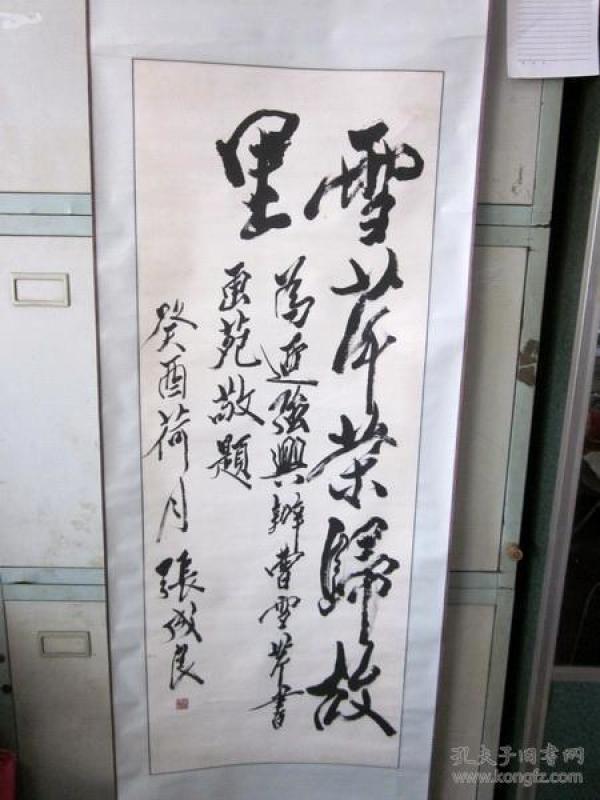 雪芹荣歸故
里
為延强興辦曹雪芹書
画苑敬題
癸酉荷月 張成良
孔夫子旧書网
www.kongfz.com